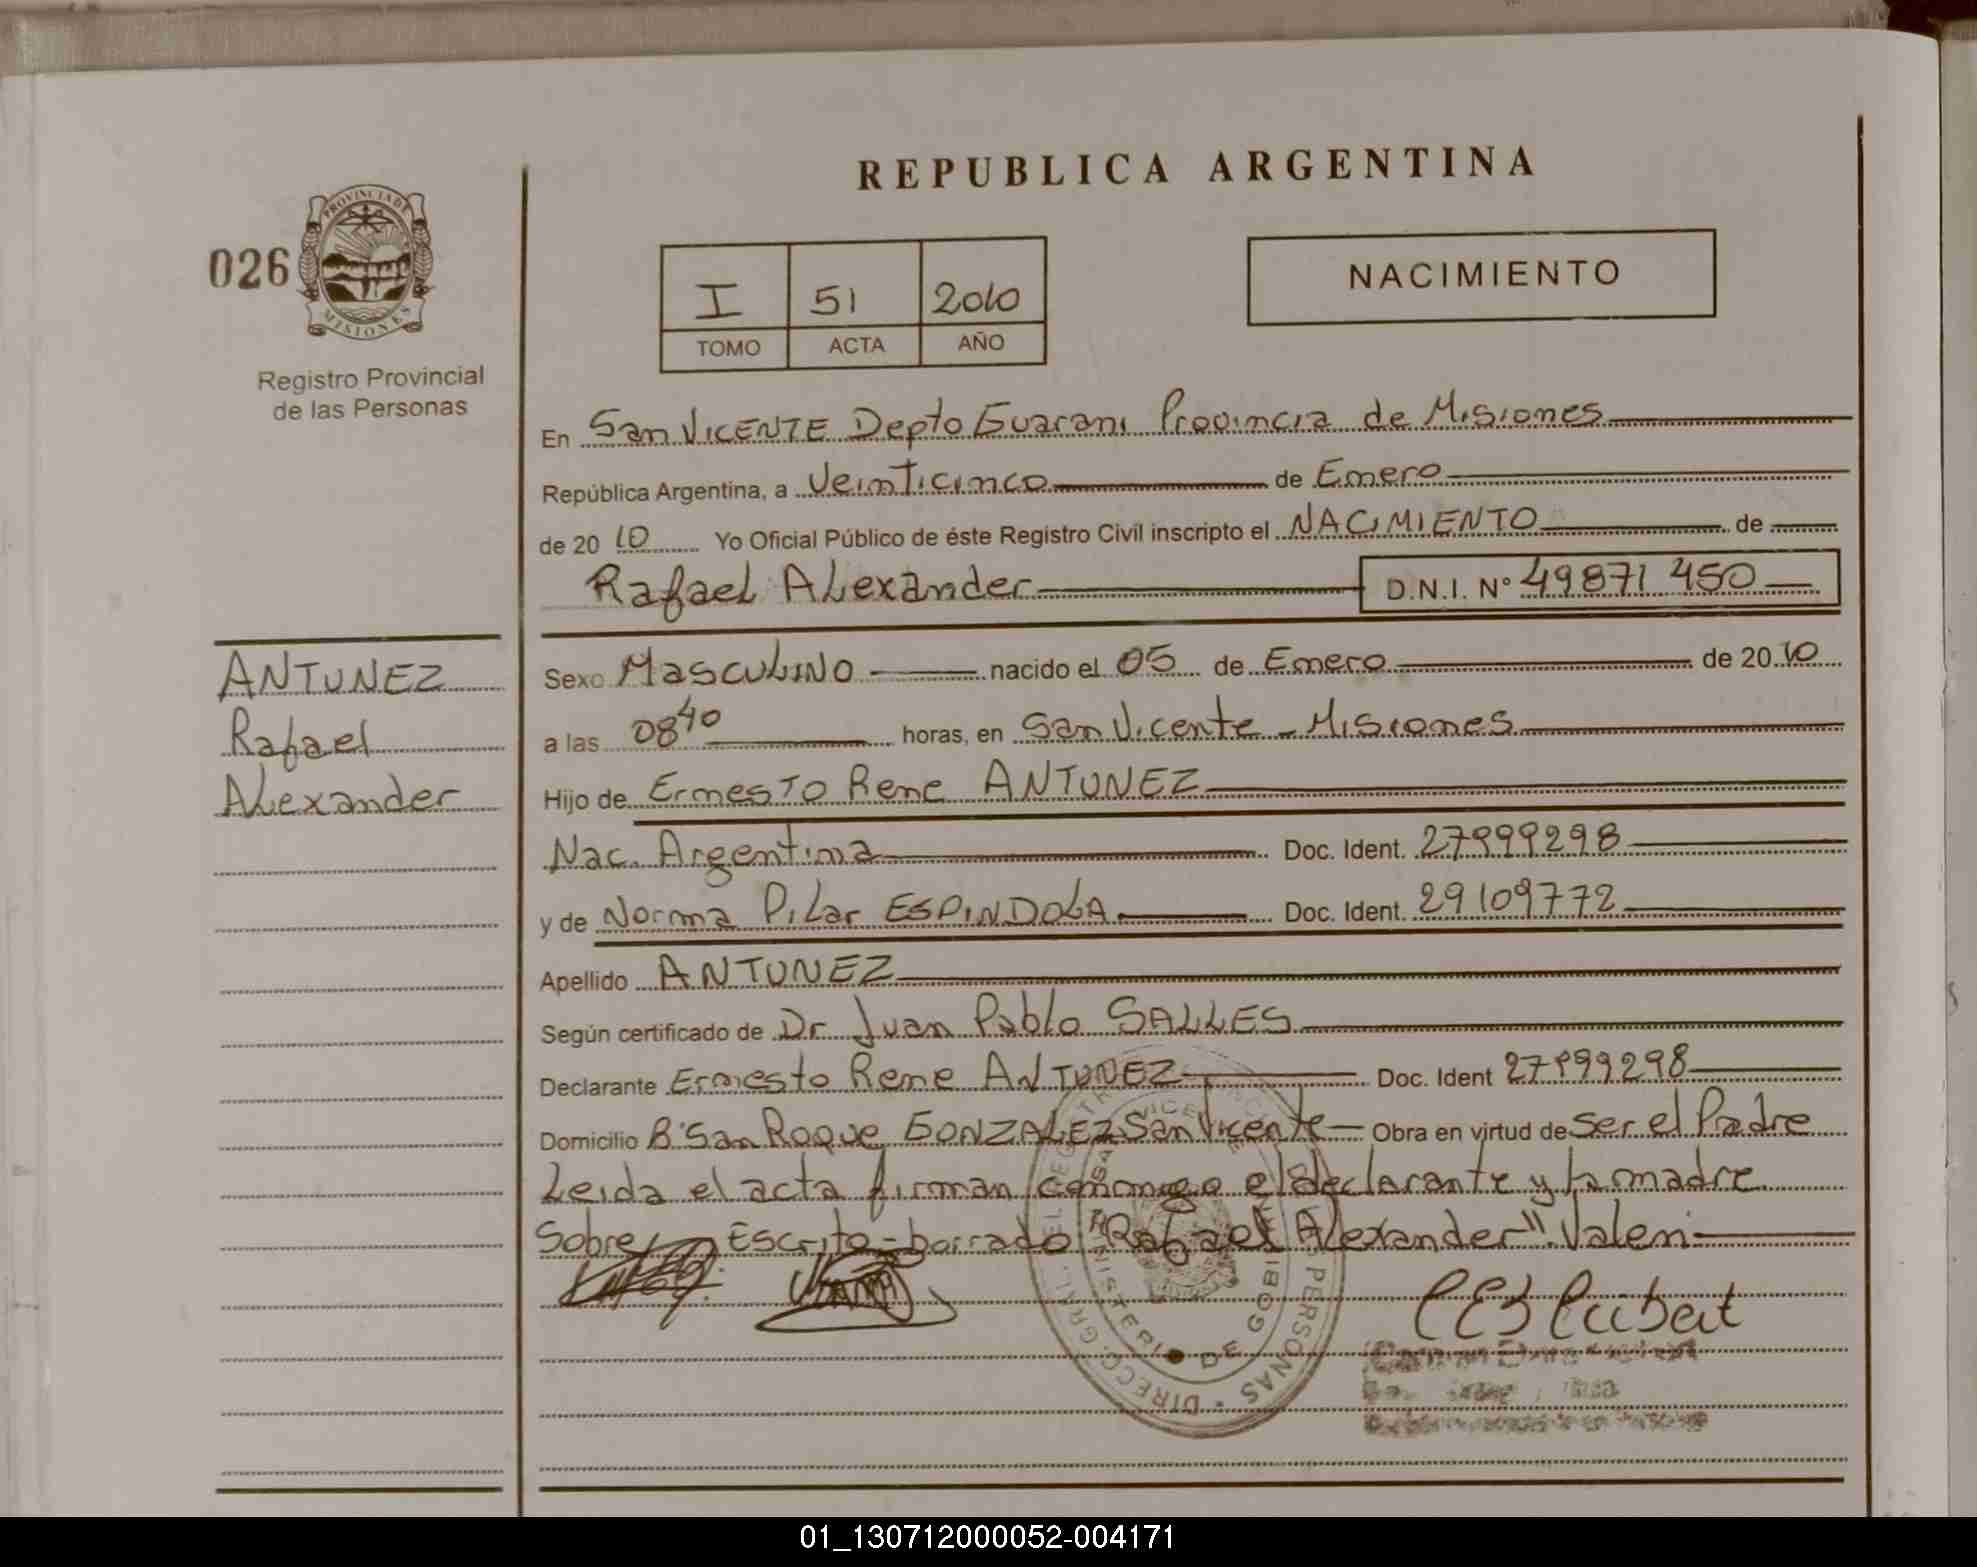 REPUBLICA ARGENTINA
026
PROVINCIA DE
MISIONES
Registro Provincial
de las Personas
I 51 2010
TOMO ACTA AÑO
NACIMIENTO
En San VICENTE Depto Guarani Provincia de Misiones
República Argentina, a Veinticinco de Enero
de 20 10 Yo Oficial Público de éste Registro Civil inscripto el NACIMIENTO de
Rafael Alexander D.N.I. Nº 49871450
ANTUNEZ
Rafael
Alexander
Sexo Masculino nacido el 05 de Enero de 20 10
a las 08 40 horas, en San Vicente - Misiones
Hijo de Ernesto Rene ANTUNEZ
Nac. Argentina Doc. Ident. 27999298
y de Norma Pilar ESPINDOLA Doc. Ident. 29109772
Apellido ANTUNEZ
Según certificado de Dr. Juan Pablo SALLES
Declarante Ernesto Rene ANTUNEZ Doc. Ident 27999298
Domicilio Bº San Roque GONZALEZ San Vicente Obra en virtud de ser el Padre
Leida el acta firman conmigo el declarante y la madre
Sobre Escrito - borrado "Rafael Alexander" Valen
01_130712000052-004171